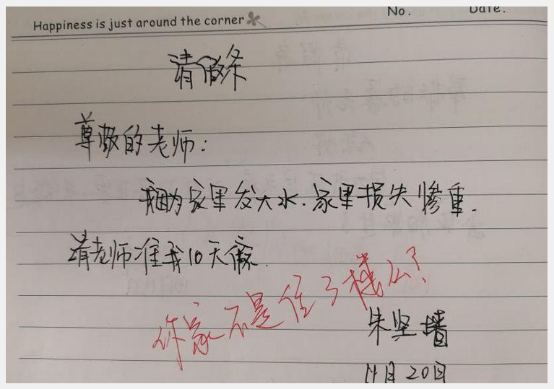 Happiness is just around the corner No. Date.
请假条
尊敬的老师:
因为家里发大水.家里损失惨重.
请老师准我10天假
你家不是住3楼么?
朱坚墙
11月20日